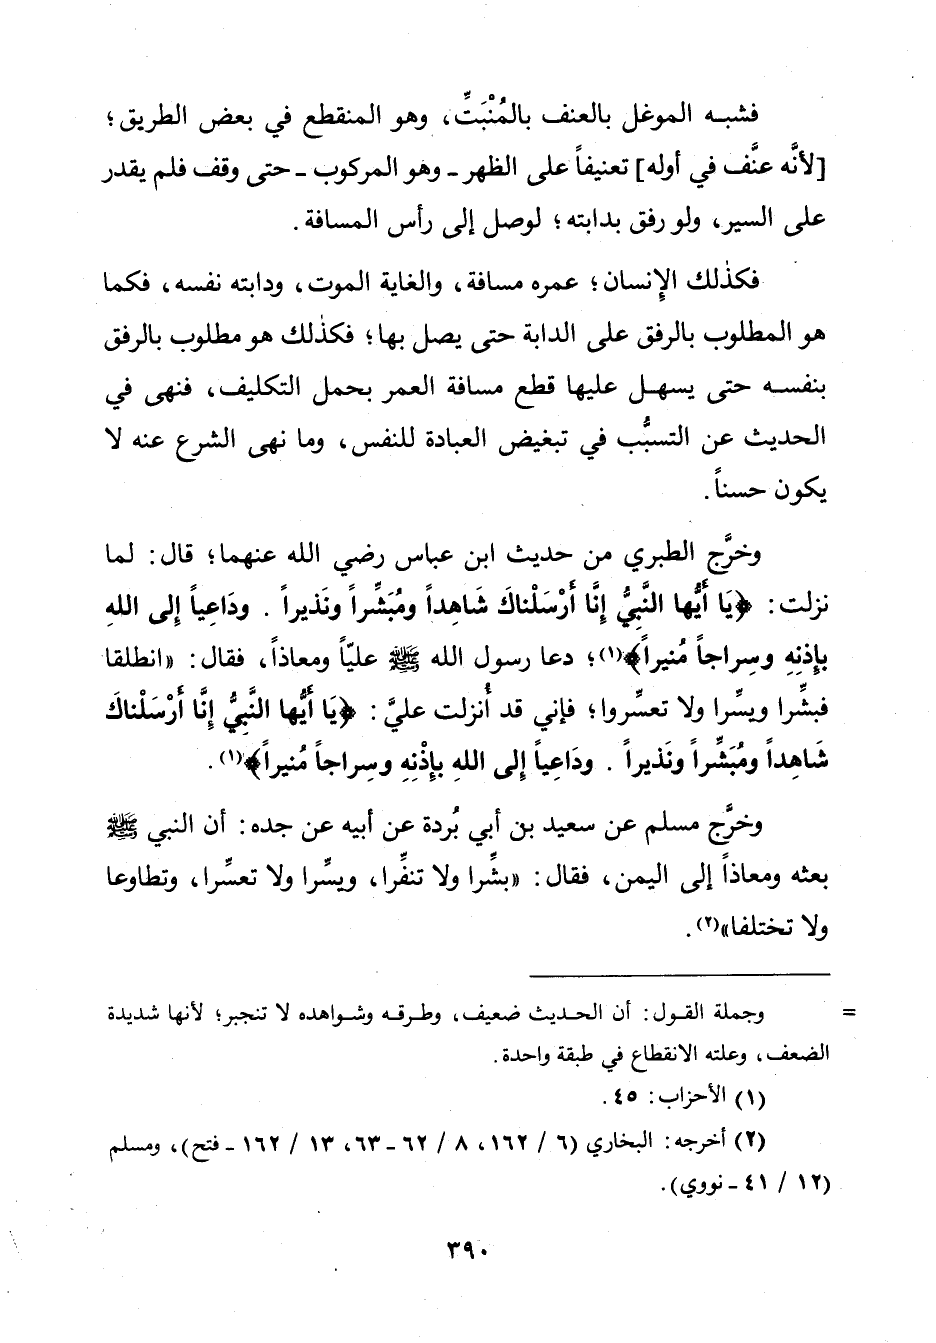 فشبه الموغل بالعنف بالمُنْبَتِّ، وهو المنقطع في بعض الطريق؛
[لأنَّه عنَّف في أوله] تعنيفاً على الظهر ـ وهو المركوب ـ حتى وقف فلم يقدر
على السير، ولو رفق بدابته؛ لوصل إلى رأس المسافة.
فكذٰلك الإِنسان؛ عمره مسافة، والغاية الموت، ودابته نفسه، فكما
هو المطلوب بالرفق على الدابة حتى يصل بها؛ فكذٰلك هو مطلوب بالرفق
بنفسه حتى يسهل عليها قطع مسافة العمر بحمل التكليف، فنهى في
الحديث عن التسبُّب في تبغيض العبادة للنفس، وما نهى الشرع عنه لا
يكون حسناً.
وخرَّج الطبري من حديث ابن عباس رضي الله عنهما؛ قال: لما
نزلت: ﴿يَا أَيُّها النَّبيُّ إِنَّا أَرْسَلْناكَ شَاهِداً ومُبَشِّراً ونَذيراً . ودَاعِياً إِلى اللهِ
بإِذنِهِ وسِراجاً مُنيراً﴾(١)؛ دعا رسول الله ﷺ عليّاً ومعاذاً، فقال: «انطلقا
فبشِّرا ويسِّرا ولا تعسِّروا؛ فإني قد أُنزلت عليَّ: ﴿يَا أَيُّها النَّبيُّ إِنَّا أَرْسَلْناكَ
شَاهِداً ومُبَشِّراً ونَذيراً . ودَاعِياً إِلى اللهِ بإِذْنِهِ وسِراجاً مُنيراً﴾(١).
وخرَّج مسلم عن سعيد بن أبي بُردة عن أبيه عن جده: أن النبي ﷺ
بعثه ومعاذاً إلى اليمن، فقال: «بشِّرا ولا تنفِّرا، ويسِّرا ولا تعسِّرا، وتطاوعا
ولا تختلفا»(٢).
= وجملة القول: أن الحديث ضعيف، وطرقه وشواهده لا تنجبر؛ لأنها شديدة
الضعف، وعلته الانقطاع في طبقة واحدة.
(١) الأحزاب: ٤٥.
(٢) أخرجه: البخاري (٦ / ١٦٢، ٨ / ٦٢ ـ ٦٣، ١٣ / ١٦٢ ـ فتح)، ومسلم
(١٢ / ٤١ ـ نووي).
٣٩٠